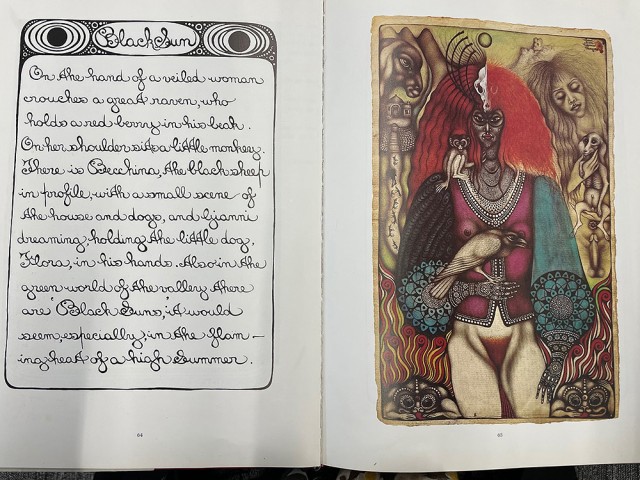 Black Sun
On the hand of a veiled woman
crouches a great raven, who
holds a red berry in his beak.
On her shoulder sits a little monkey.
There is Becchina, the black sheep
in profile, with a small scene of
the house and dogs, and Ljanni
dreaming, holding the little dog,
Flora, in his hands. Also in the
green world of the valley there
are "Black Suns", it would
seem, especially, in the flam-
ing heat of a high Summer.
64
65